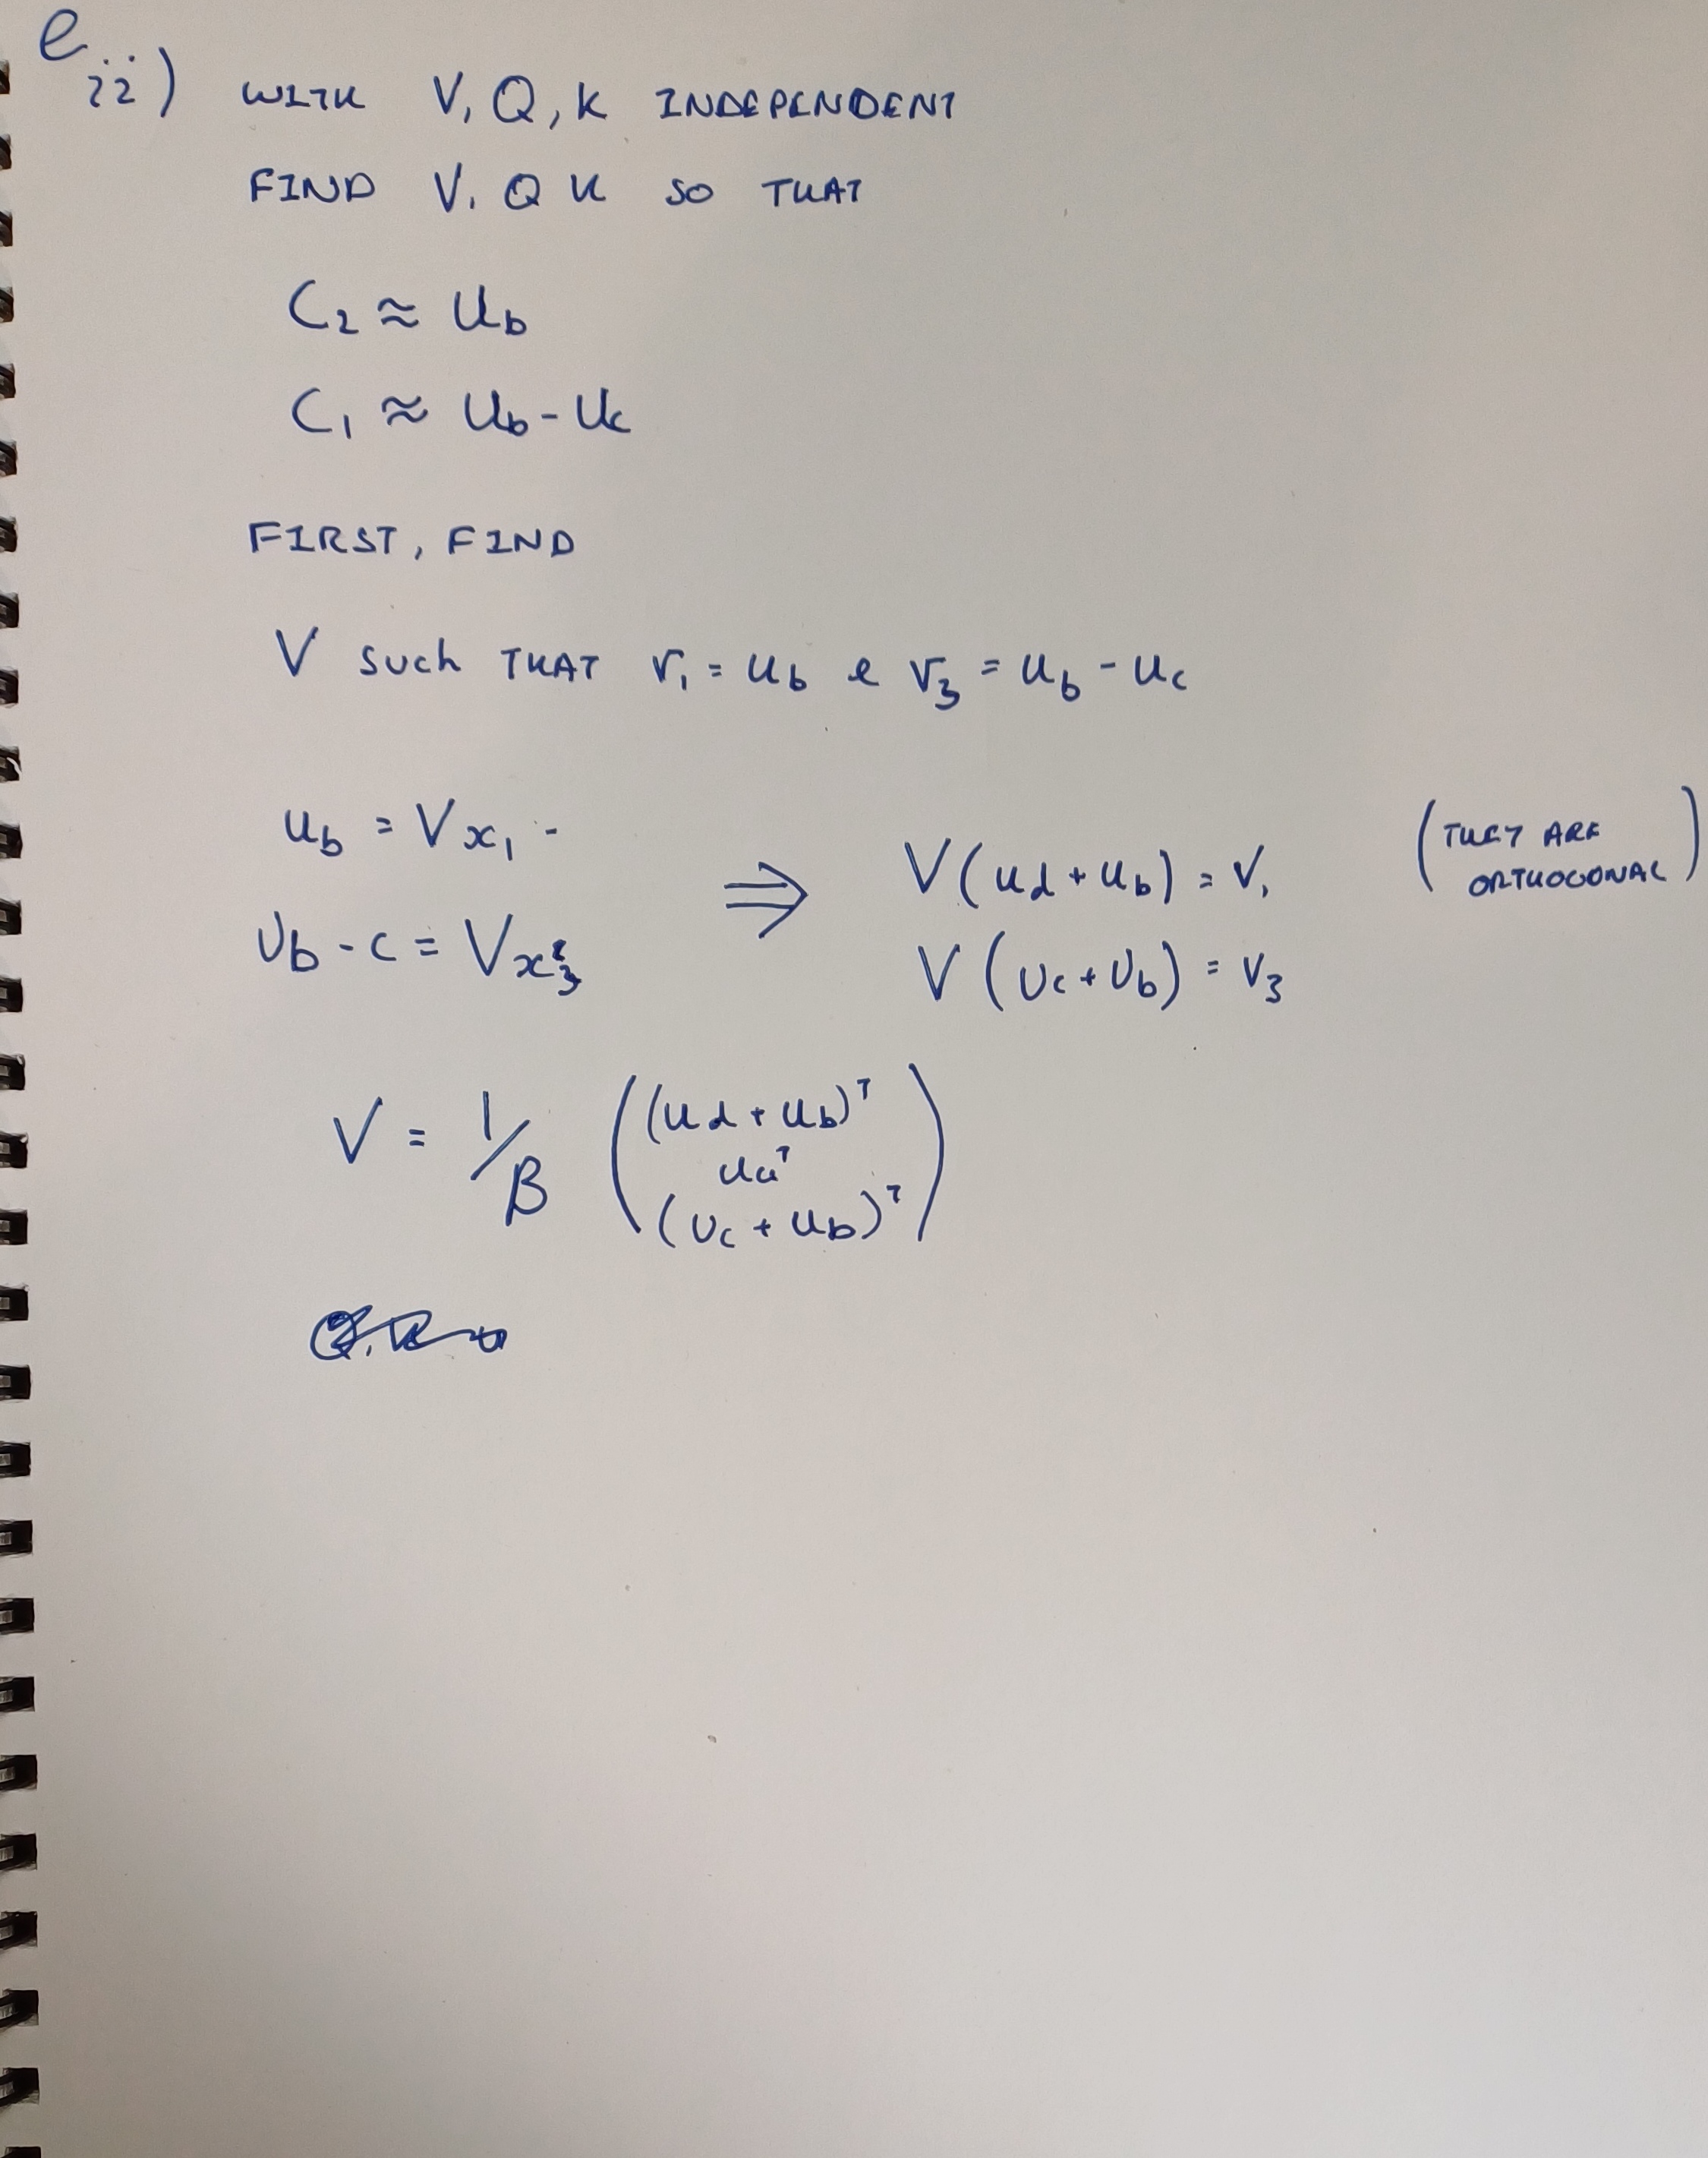 e
ii) WITH V, Q, K INDEPENDENT
FIND V, Q K SO THAT
C₂ ≈ U_b
C₁ ≈ U_b - U_c
FIRST, FIND
V SUCH THAT v₁ = u_b e v₃ = u_b - u_c
u_b = V x₁
U_b - c = V x₃
⇒
V(u_d + u_b) = V₁
V(U_c + U_b) = V₃
(THEY ARE
ORTHOGONAL)
V = 1/β ( (u_d + u_b)ᵀ
u_aᵀ
(U_c + u_b)ᵀ )